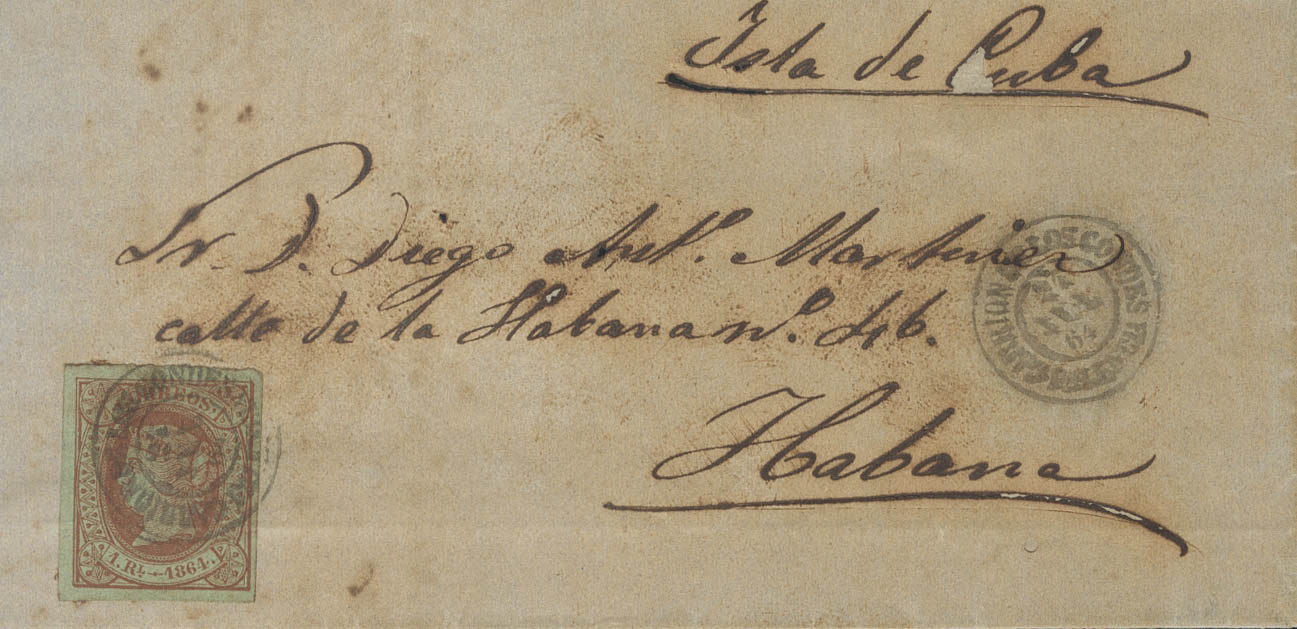 Isla de Cuba
Sr. D. Diego Ant.º Martinez
calle de la Habana nº. 46.
Habana
CORREOS
1. Rl. 1864.
64